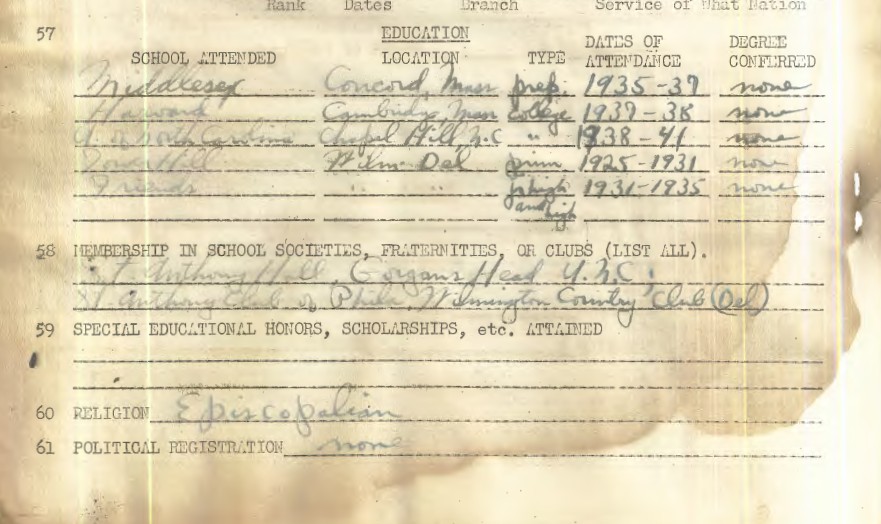 Rank Dates Branch Service of What Nation
57 EDUCATION
SCHOOL ATTENDED LOCATION TYPE DATES OF ATTENDANCE DEGREE CONFERRED
Middlesex Concord, Mass prep. 1935-37 none
Harvard Cambridge, Mass college 1937-38 none
U. of North Carolina Chapel Hill, N.C " 1938-41 none
Tower Hill Wilm. Del prim 1925-1931 none
Friends " " jr high and high 1931-1935 none
58 MEMBERSHIP IN SCHOOL SOCIETIES, FRATERNITIES, OR CLUBS (LIST ALL).
St. Anthony Hall, Gorgans Head U.N.C.
St. Anthony Club of Phila, Wilmington Country Club (Del)
59 SPECIAL EDUCATIONAL HONORS, SCHOLARSHIPS, etc. ATTAINED
60 RELIGION Episcopalian
61 POLITICAL REGISTRATION none